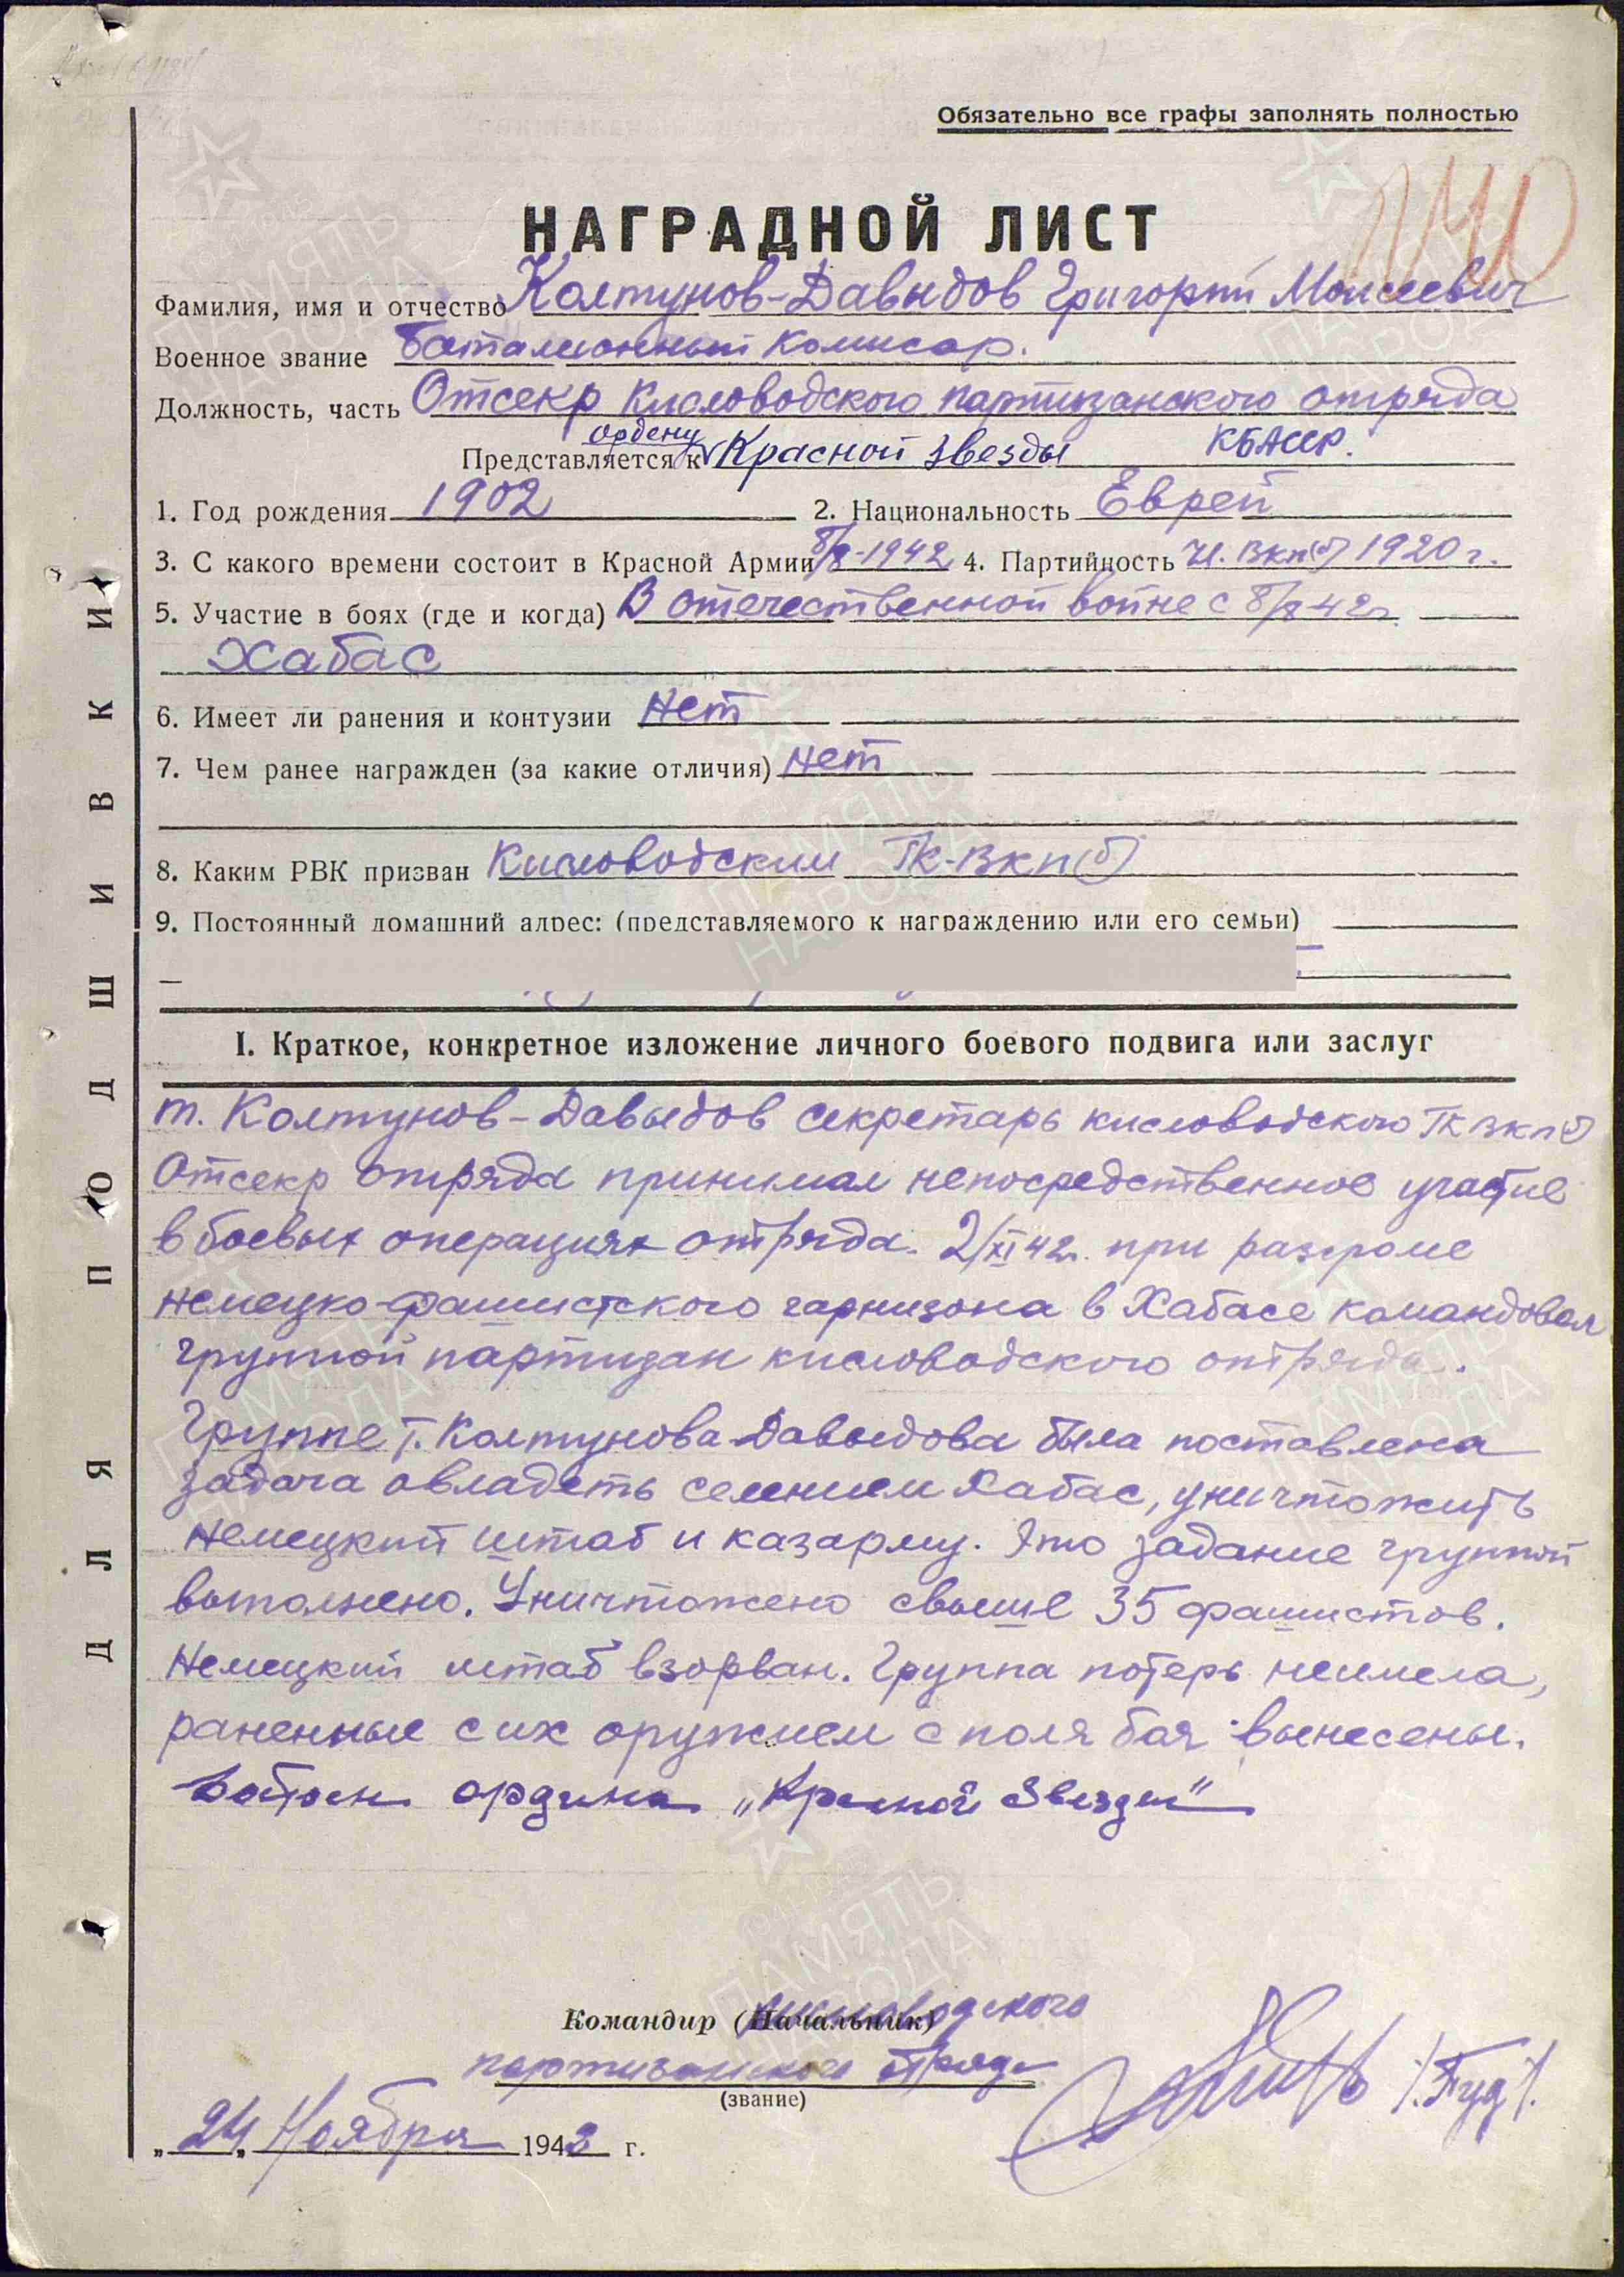 Обязательно все графы заполнять полностью
НАГРАДНОЙ ЛИСТ
Фамилия, имя и отчество Колтунов-Давыдов Григорий Моисеевич
Военное звание Баталионный Комисар.
Должность, часть Отсекр Кисловодского партизанского отряда
ордену КБАССР.
Представляется к Красной Звезды
1. Год рождения 1902 2. Национальность Еврей
3. С какого времени состоит в Красной Армии 8/8-1942 4. Партийность Чл. ВКП(б) 1920 г.
5. Участие в боях (где и когда) В отечественной войне с 8/8-42г.
Хабас
6. Имеет ли ранения и контузии Нет
7. Чем ранее награжден (за какие отличия) нет
8. Каким РВК призван Кисловодским ГК-ВКП(б)
9. Постоянный домашний адрес: (представляемого к награждению или его семьи)
I. Краткое, конкретное изложение личного боевого подвига или заслуг
т. Колтунов-Давыдов секретарь кисловодского ГК ВКП(б)
Отсекр отряда принимал непосредственное участие
в боевых операциях отряда. 2/XI 42г. при разгроме
немецко-фашистского гарнизона в Хабасе командовал
группой партизан кисловодского отряда.
Группе т. Колтунова-Давыдова была поставлена
задача овладеть селением Хабас, уничтожить
немецкий штаб и казарму. Это задание группой
выполнено. Уничтожено свыше 35 фашистов.
Немецкий штаб взорван. Группа потерь неимела,
раненные с их оружием с поля боя вынесены.
Достоен ордена „Красной Звезды"
Командир (Начальник) Кисловодского
партизанского отряда
(звание)
/Пуд/.
„24„ Ноября 1942 г.
ДЛЯ ПОДШИВКИ
ПАМЯТЬ
НАРОДА